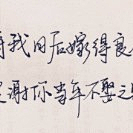 待我日后嫁得良
定谢你当年不娶之